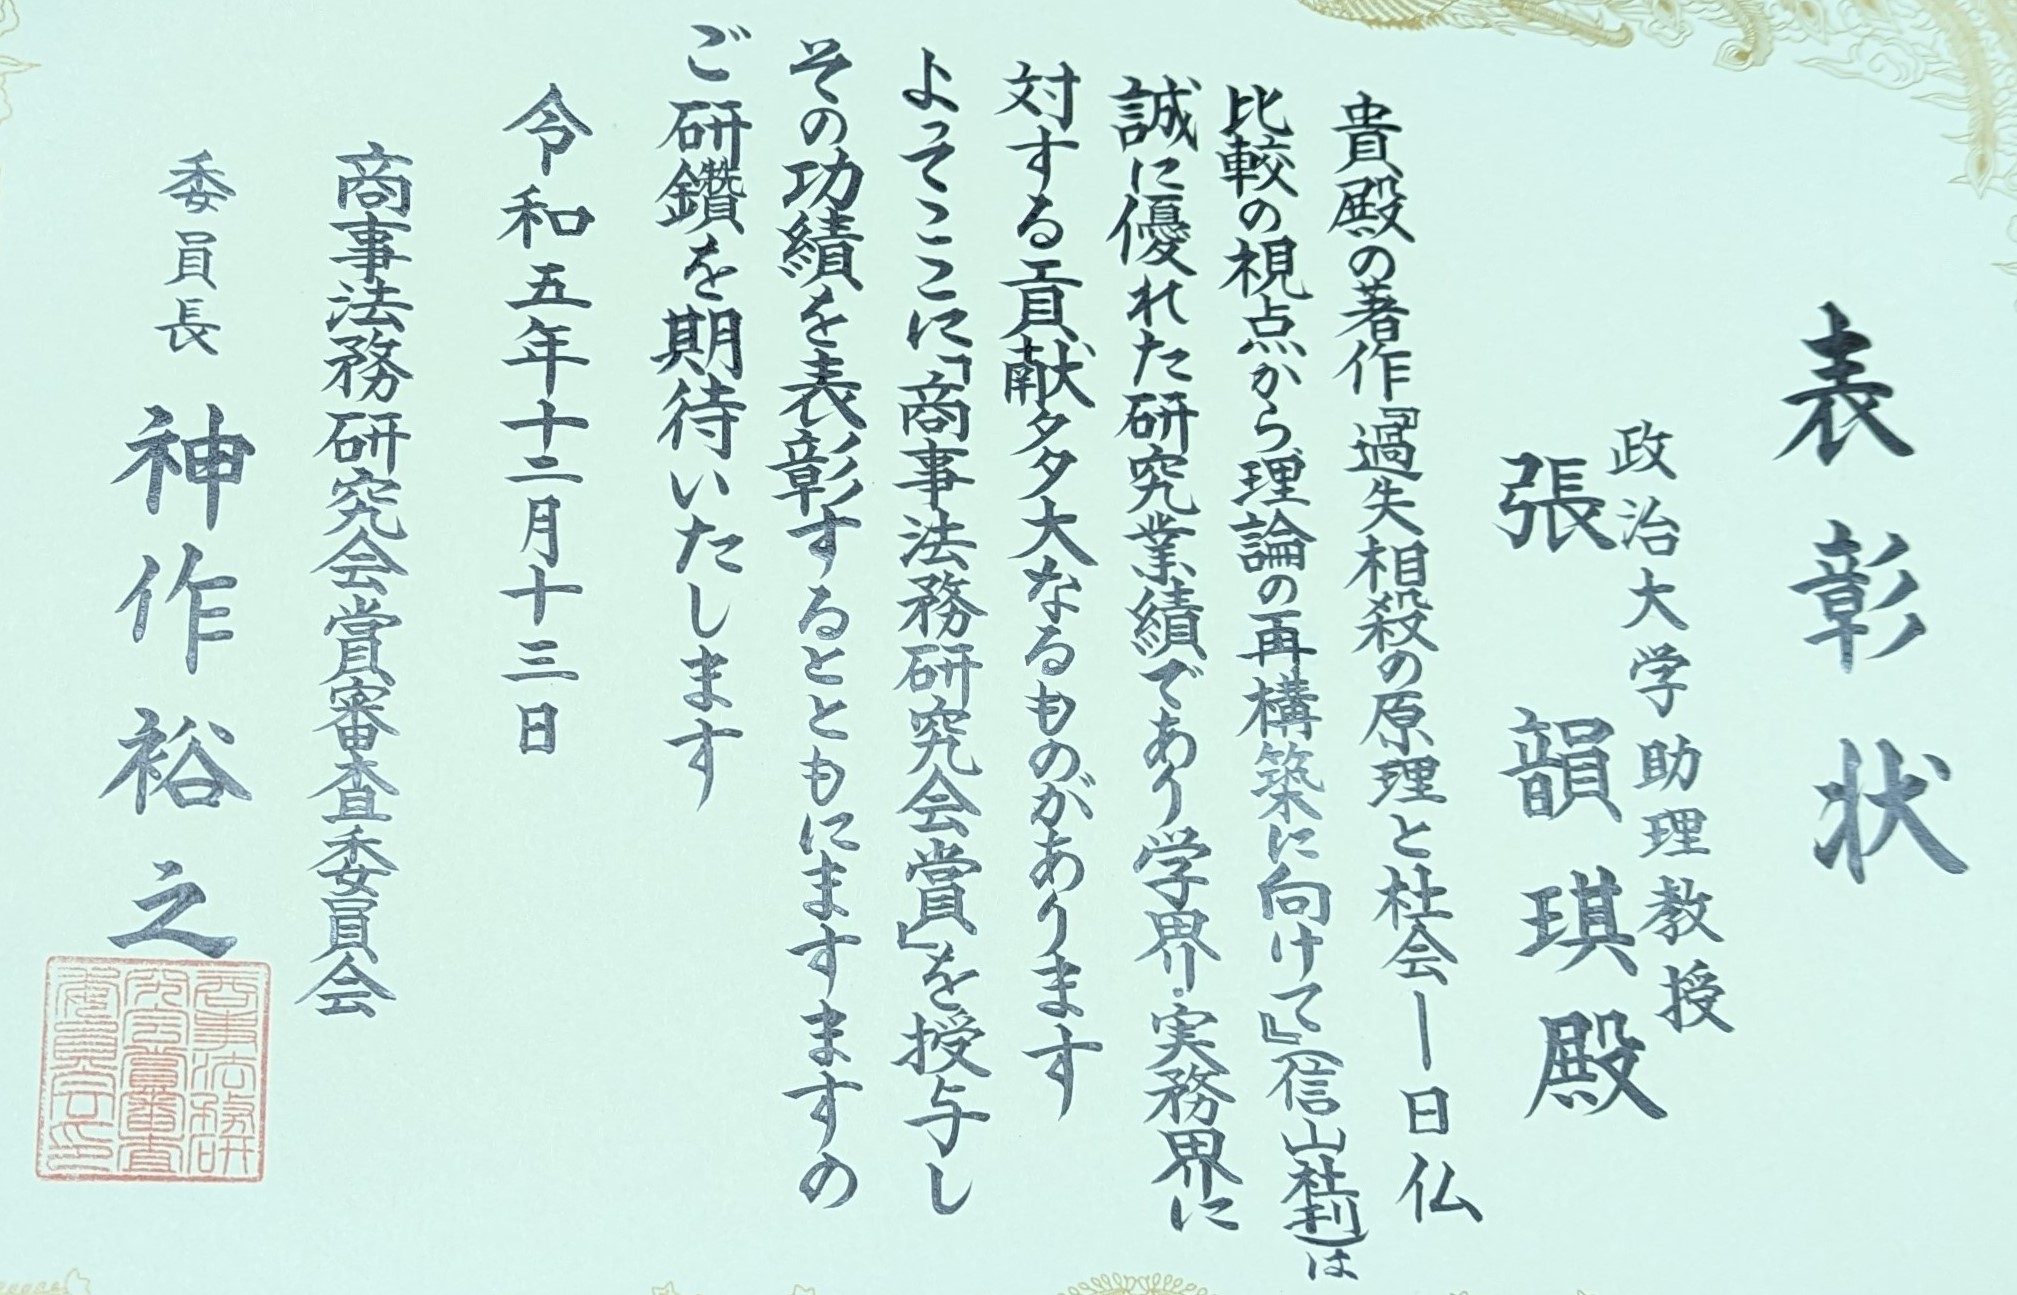 表彰状
政治大学助理教授
張韻琪殿
貴殿の著作『過失相殺の原理と社会―日仏
比較の視点から理論の再構築に向けて』(信山社刊)は
誠に優れた研究業績であり学界・実務界に
対する貢献多大なるものがあります
よってここに「商事法務研究会賞」を授与し
その功績を表彰するとともにますますの
ご研鑽を期待いたします
令和五年十二月十三日
商事法務研究会賞審査委員会
委員長 神作裕之
商事法務研
究会賞審査
委員会之印